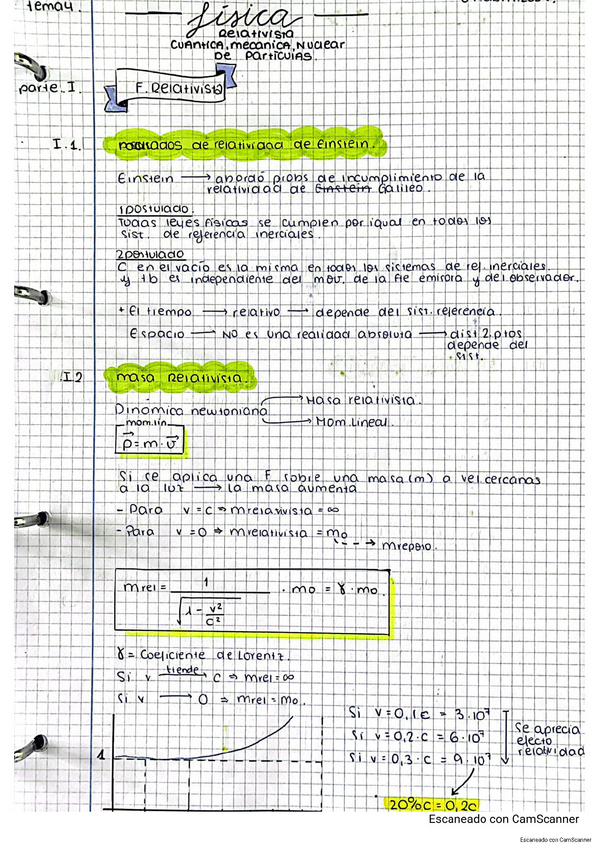 Tema4.
física
Relativista
CUANTICA, mecánica, Nuclear
DE Partículas.
parte.I.
F. Relativista
I.1.
de relatividad de Einstein.
Einstein → abordó probs de incumplimiento de la
relatividad de Einstein Galileo.
1 POSTULADO.
Todas leyes físicas se cumplen por igual en todos los
sist. de referencia inerciales.
2 postulado
C en el vacío es la misma en todos los sistemas de ref. inerciales
y tb es independiente del mov. de la fte emisora y del observador.
+ El tiempo → relativo → depende del sist. referencia.
Espacio → NO es una realidad absoluta → dist. 2 ptos
depende del
sist.
I.2
masa Relativista.
Dinámica newtoniana
Masa relativista.
Mom. Lineal.
mom. lin.
p = m · v
Si se aplica una F sobre una masa (m) a vel. cercanas
a la luz → la masa aumenta
- Para v = c ⇒ m relativista = ∞
- Para v = 0 ⇒ m relativista = mo
→ m reposo.
m rel = 1 / √(1 - v²/c²) · mo = γ · mo.
γ = Coeficiente de Lorentz.
Si v tiende → c ⇒ mrel = ∞
Si v → 0 ⇒ mrel = mo.
Si v = 0,1 c = 3·10⁷
Si v = 0,2 · c = 6·10⁷
Si v = 0,3 · c = 9·10⁷
Se aprecia
efecto
relatividad
1
20% c = 0,2c
Escaneado con CamScanner
Escaneado con CamScanner